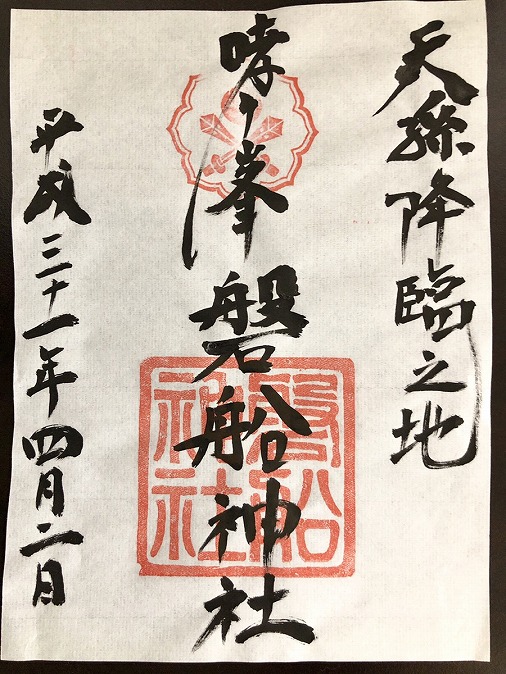 天孫降臨之地
哮ヶ峯
磐船神社
平成三十一年四月二日
磐船神社